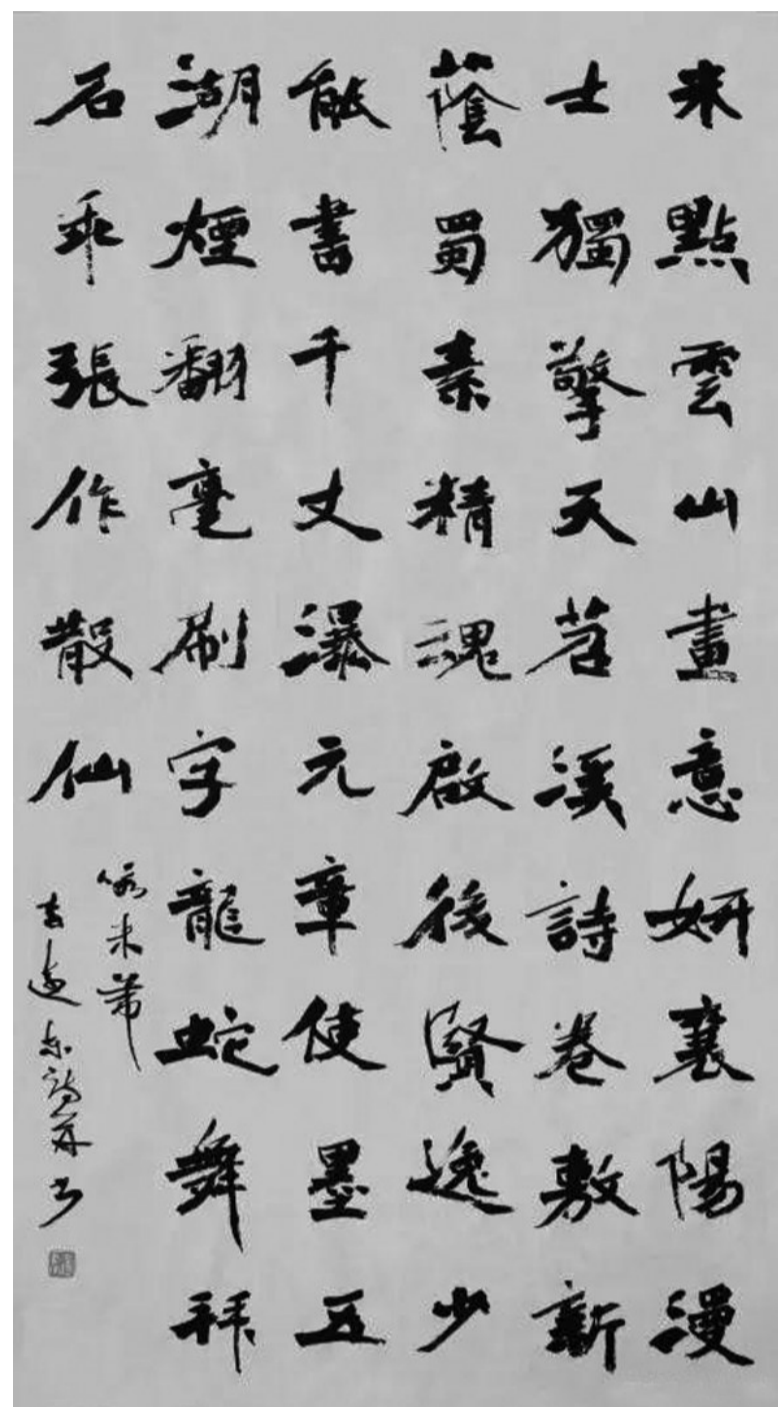 米點雲山畫意妍襄陽漫
士獨擎天苕溪詩卷敷新
蔭蜀素精魂啟後賢逸少
能書千丈瀑元章使墨五
湖煙翻毫刷字龍蛇舞拜
石乖張作散仙
咏米芾
詩并书